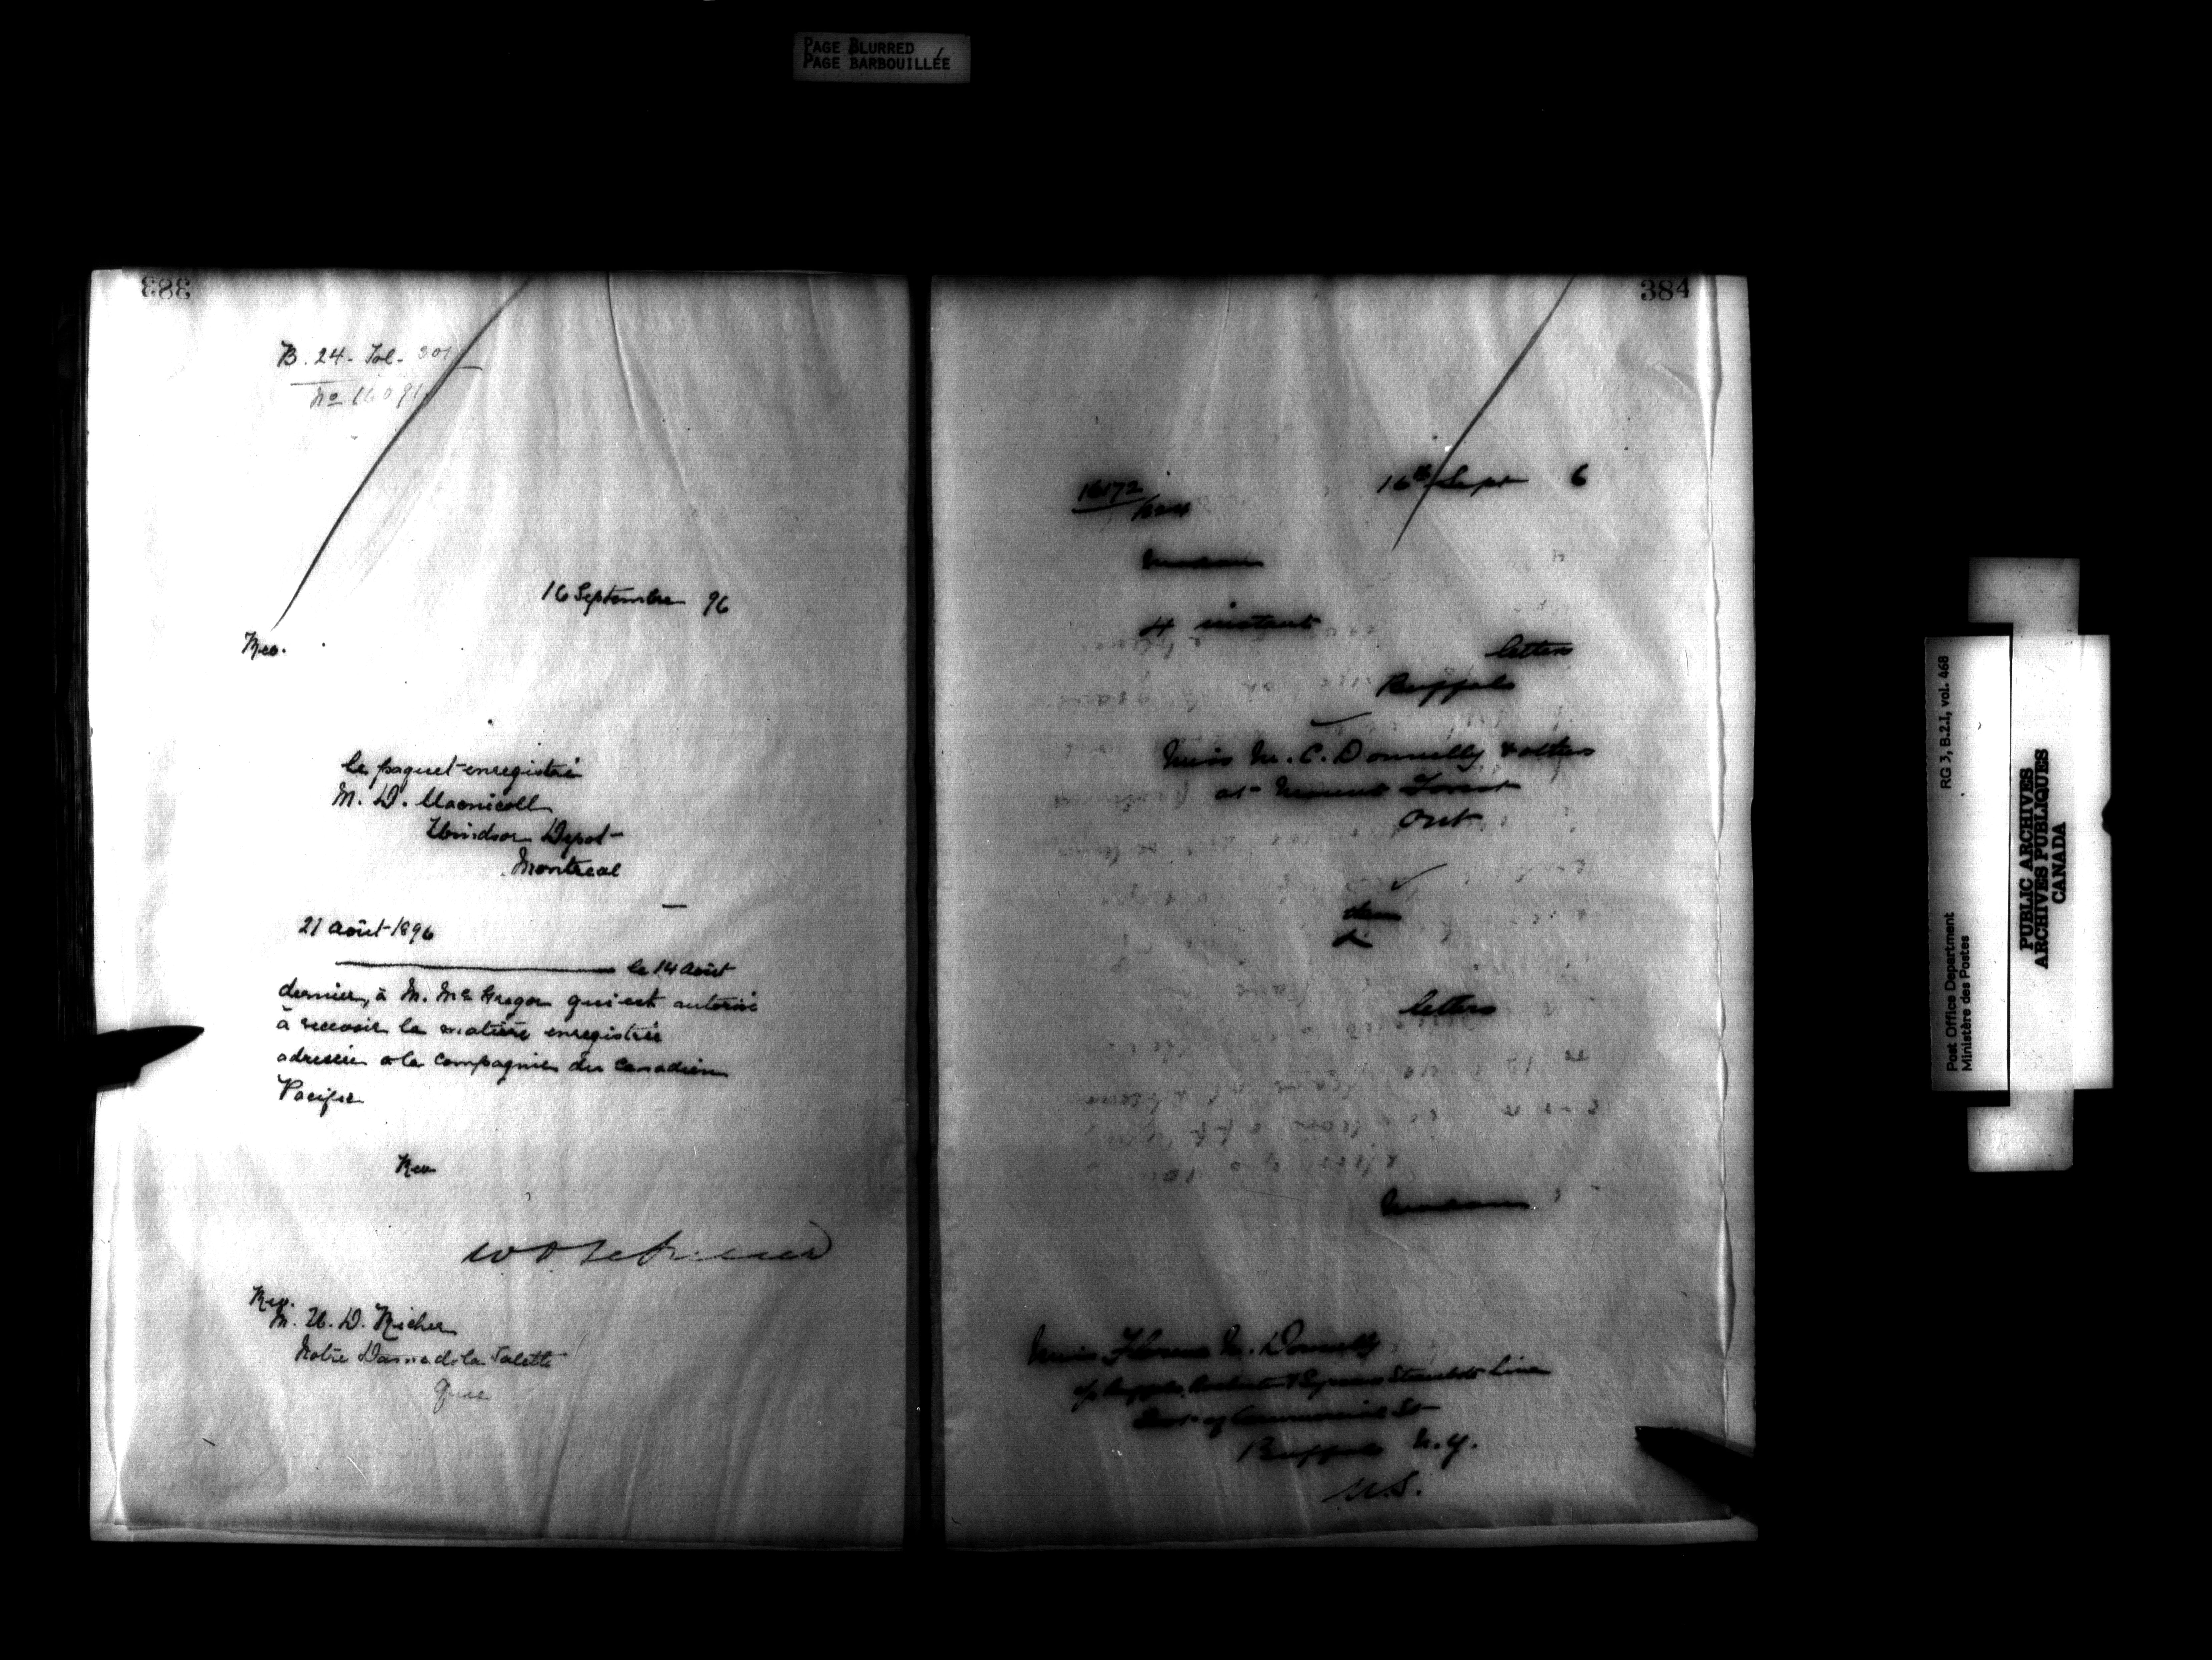 PAGE BLURRED
PAGE BARBOUILLÉE
383
B. 24 - Fol. 301
No 16091
16 Septembre 96
Rev.
le paquet enregistré
M. D. Macnicoll
Windsor Depot
Montreal
21 août 1896
le 14 août
dernier, à M. McGregor qui est autorisé
à recevoir la matière enregistrée
adressée a la Compagnie du Canadien
Pacific
Rev
Rev.
M. D. Richer
Notre Dame de la Salette
Que
384
16172
16th Sept 6
Madam
4 instant
letters
Buffalo
Miss M. C. Donnelly & others
at Mount Forest
Ont
letters
Madam
Miss Florence M. Donnelly
Steamboat Line
Foot of Commercial St
Buffalo N.Y.
U.S.
Post Office Department
Ministère des Postes
RG 3, B.2.I, vol. 468
PUBLIC ARCHIVES
ARCHIVES PUBLIQUES
CANADA